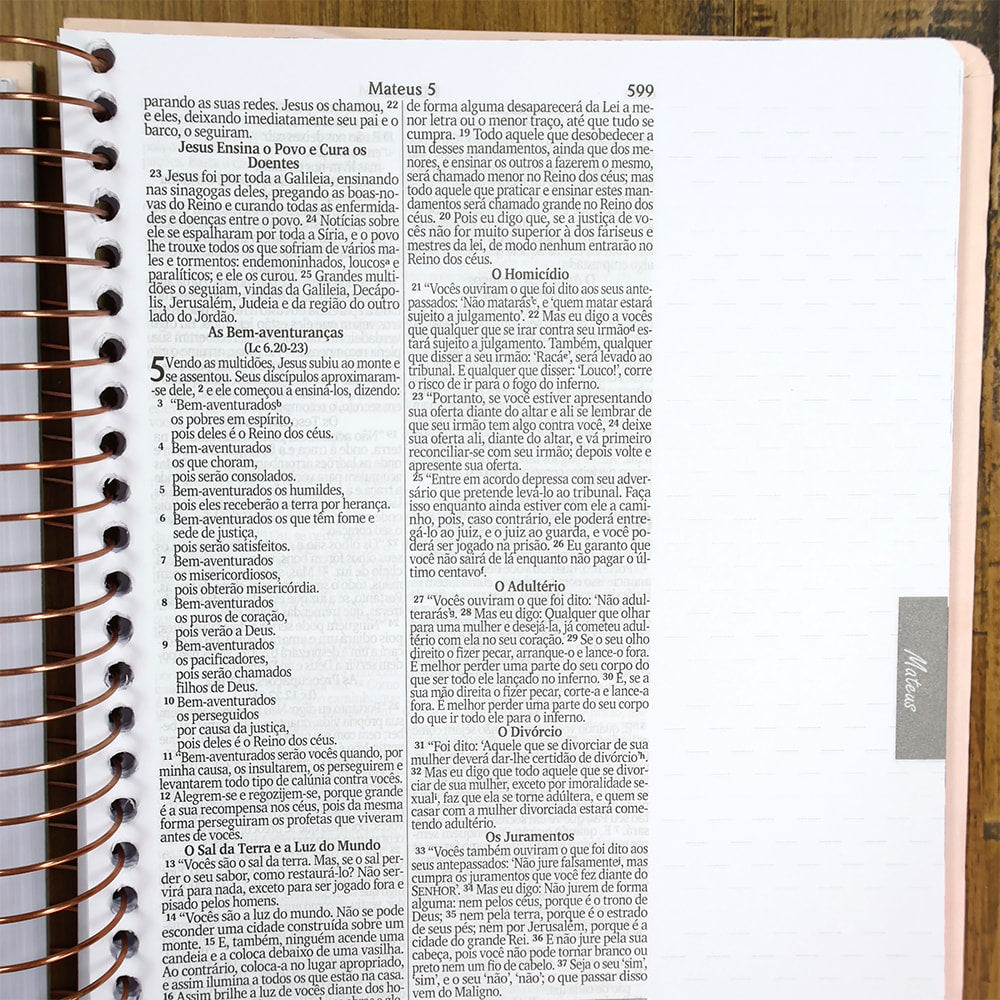 Mateus 5
599
parando as suas redes. Jesus os chamou, 22
e eles, deixando imediatamente seu pai e o
barco, o seguiram.
Jesus Ensina o Povo e Cura os
Doentes
23 Jesus foi por toda a Galileia, ensinando
nas sinagogas deles, pregando as boas-no-
vas do Reino e curando todas as enfermida-
des e doenças entre o povo. 24 Notícias sobre
ele se espalharam por toda a Síria, e o povo
lhe trouxe todos os que sofriam de vários ma-
les e tormentos: endemoninhados, loucosa e
paralíticos; e ele os curou. 25 Grandes multi-
dões o seguiam, vindas da Galileia, Decápo-
lis, Jerusalém, Judeia e da região do outro
lado do Jordão.
As Bem-aventuranças
(Lc 6.20-23)
5 Vendo as multidões, Jesus subiu ao monte e
se assentou. Seus discípulos aproximaram-
-se dele, 2 e ele começou a ensiná-los, dizendo:
3 “Bem-aventuradosb
os pobres em espírito,
pois deles é o Reino dos céus.
4 Bem-aventurados
os que choram,
pois serão consolados.
5 Bem-aventurados os humildes,
pois eles receberão a terra por herança.
6 Bem-aventurados os que têm fome e
sede de justiça,
pois serão satisfeitos.
7 Bem-aventurados
os misericordiosos,
pois obterão misericórdia.
8 Bem-aventurados
os puros de coração,
pois verão a Deus.
9 Bem-aventurados
os pacificadores,
pois serão chamados
filhos de Deus.
10 Bem-aventurados
os perseguidos
por causa da justiça,
pois deles é o Reino dos céus.
11 “Bem-aventurados serão vocês quando, por
minha causa, os insultarem, os perseguirem e
levantarem todo tipo de calúnia contra vocês.
12 Alegrem-se e regozijem-se, porque grande
é a sua recompensa nos céus, pois da mesma
forma perseguiram os profetas que viveram
antes de vocês.
O Sal da Terra e a Luz do Mundo
13 “Vocês são o sal da terra. Mas, se o sal per-
der o seu sabor, como restaurá-lo? Não ser-
virá para nada, exceto para ser jogado fora e
pisado pelos homens.
14 “Vocês são a luz do mundo. Não se pode
esconder uma cidade construída sobre um
monte. 15 E, também, ninguém acende uma
candeia e a coloca debaixo de uma vasilha.
Ao contrário, coloca-a no lugar apropriado,
e assim ilumina a todos os que estão na casa.
16 Assim brilhe a luz de vocês diante dos ho-
de forma alguma desaparecerá da Lei a me-
nor letra ou o menor traço, até que tudo se
cumpra. 19 Todo aquele que desobedecer a
um desses mandamentos, ainda que dos me-
nores, e ensinar os outros a fazerem o mesmo,
será chamado menor no Reino dos céus; mas
todo aquele que praticar e ensinar estes man-
damentos será chamado grande no Reino dos
céus. 20 Pois eu digo que, se a justiça de vo-
cês não for muito superior à dos fariseus e
mestres da lei, de modo nenhum entrarão no
Reino dos céus.
O Homicídio
21 “Vocês ouviram o que foi dito aos seus ante-
passados: ‘Não matarás’c, e ‘quem matar estará
sujeito a julgamento’. 22 Mas eu digo a vocês
que qualquer que se irar contra seu irmãod es-
tará sujeito a julgamento. Também, qualquer
que disser a seu irmão: ‘Racáe’, será levado ao
tribunal. E qualquer que disser: ‘Louco!’, corre
o risco de ir para o fogo do inferno.
23 “Portanto, se você estiver apresentando
sua oferta diante do altar e ali se lembrar de
que seu irmão tem algo contra você, 24 deixe
sua oferta ali, diante do altar, e vá primeiro
reconciliar-se com seu irmão; depois volte e
apresente sua oferta.
25 “Entre em acordo depressa com seu adver-
sário que pretende levá-lo ao tribunal. Faça
isso enquanto ainda estiver com ele a cami-
nho, pois, caso contrário, ele poderá entre-
gá-lo ao juiz, e o juiz ao guarda, e você po-
derá ser jogado na prisão. 26 Eu garanto que
você não sairá de lá enquanto não pagar o úl-
timo centavof.
O Adultério
27 “Vocês ouviram o que foi dito: ‘Não adul-
terarás’g. 28 Mas eu digo: Qualquer que olhar
para uma mulher e desejá-la, já cometeu adul-
tério com ela no seu coração. 29 Se o seu olho
direito o fizer pecar, arranque-o e lance-o fora.
É melhor perder uma parte do seu corpo do
que ser todo ele lançado no inferno. 30 E, se a
sua mão direita o fizer pecar, corte-a e lance-a
fora. É melhor perder uma parte do seu corpo
do que ir todo ele para o inferno.
O Divórcio
31 “Foi dito: ‘Aquele que se divorciar de sua
mulher deverá dar-lhe certidão de divórcio’h.
32 Mas eu digo que todo aquele que se divor-
ciar de sua mulher, exceto por imoralidade se-
xuali, faz que ela se torne adúltera, e quem se
casar com a mulher divorciada estará come-
tendo adultério.
Os Juramentos
33 “Vocês também ouviram o que foi dito aos
seus antepassados: ‘Não jure falsamentej, mas
cumpra os juramentos que você fez diante do
SENHOR’. 34 Mas eu digo: Não jurem de forma
alguma: nem pelos céus, porque é o trono de
Deus; 35 nem pela terra, porque é o estrado
de seus pés; nem por Jerusalém, porque é a
cidade do grande Rei. 36 E não jure pela sua
cabeça, pois você não pode tornar branco ou
preto nem um fio de cabelo. 37 Seja o seu ‘sim’,
‘sim’, e o seu ‘não’, ‘não’; o que passar disso
vem do Maligno.
Mateus